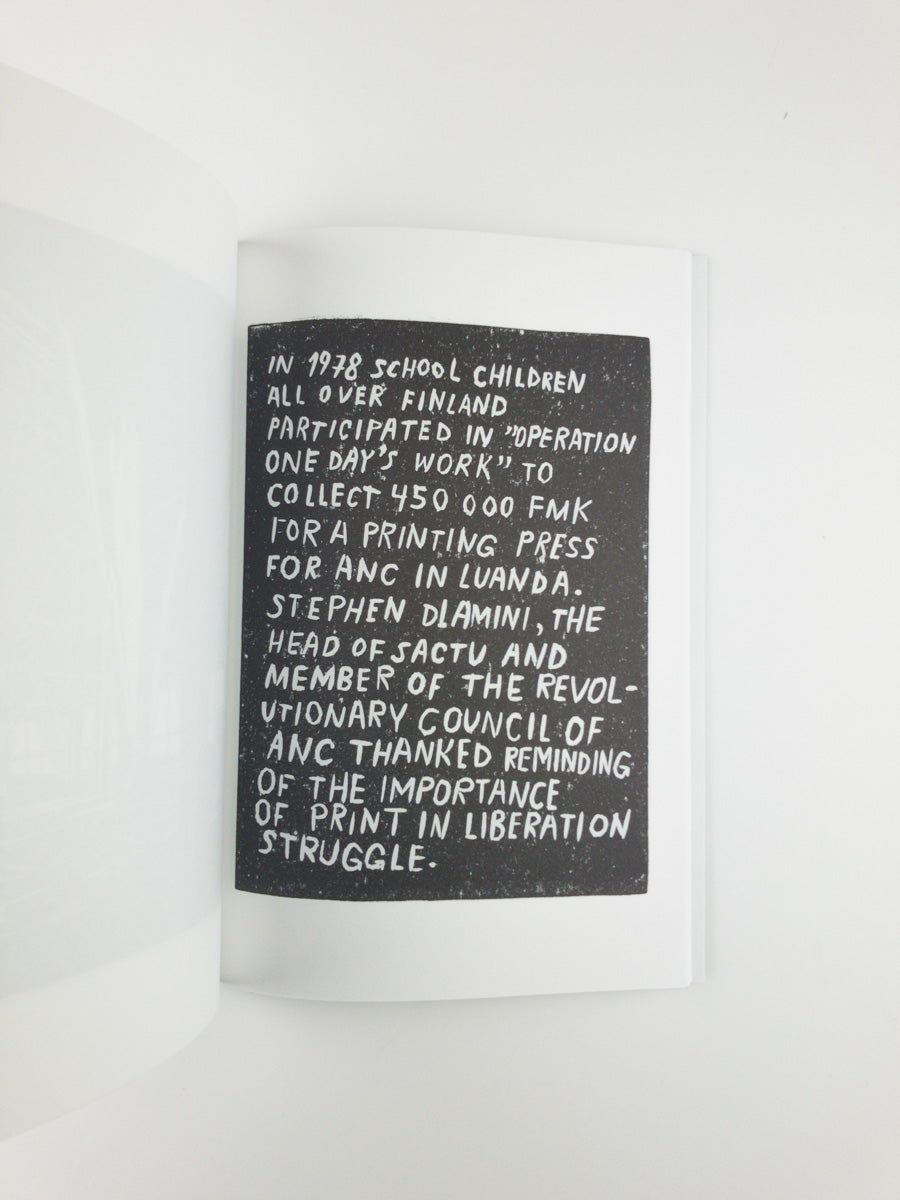 IN 1978 SCHOOL CHILDREN
ALL OVER FINLAND
PARTICIPATED IN "OPERATION
ONE DAY'S WORK" TO
COLLECT 450 000 FMK
FOR A PRINTING PRESS
FOR ANC IN LUANDA.
STEPHEN DLAMINI, THE
HEAD OF SACTU AND
MEMBER OF THE REVOL-
UTIONARY COUNCIL OF
ANC THANKED REMINDING
OF THE IMPORTANCE
OF PRINT IN LIBERATION
STRUGGLE.